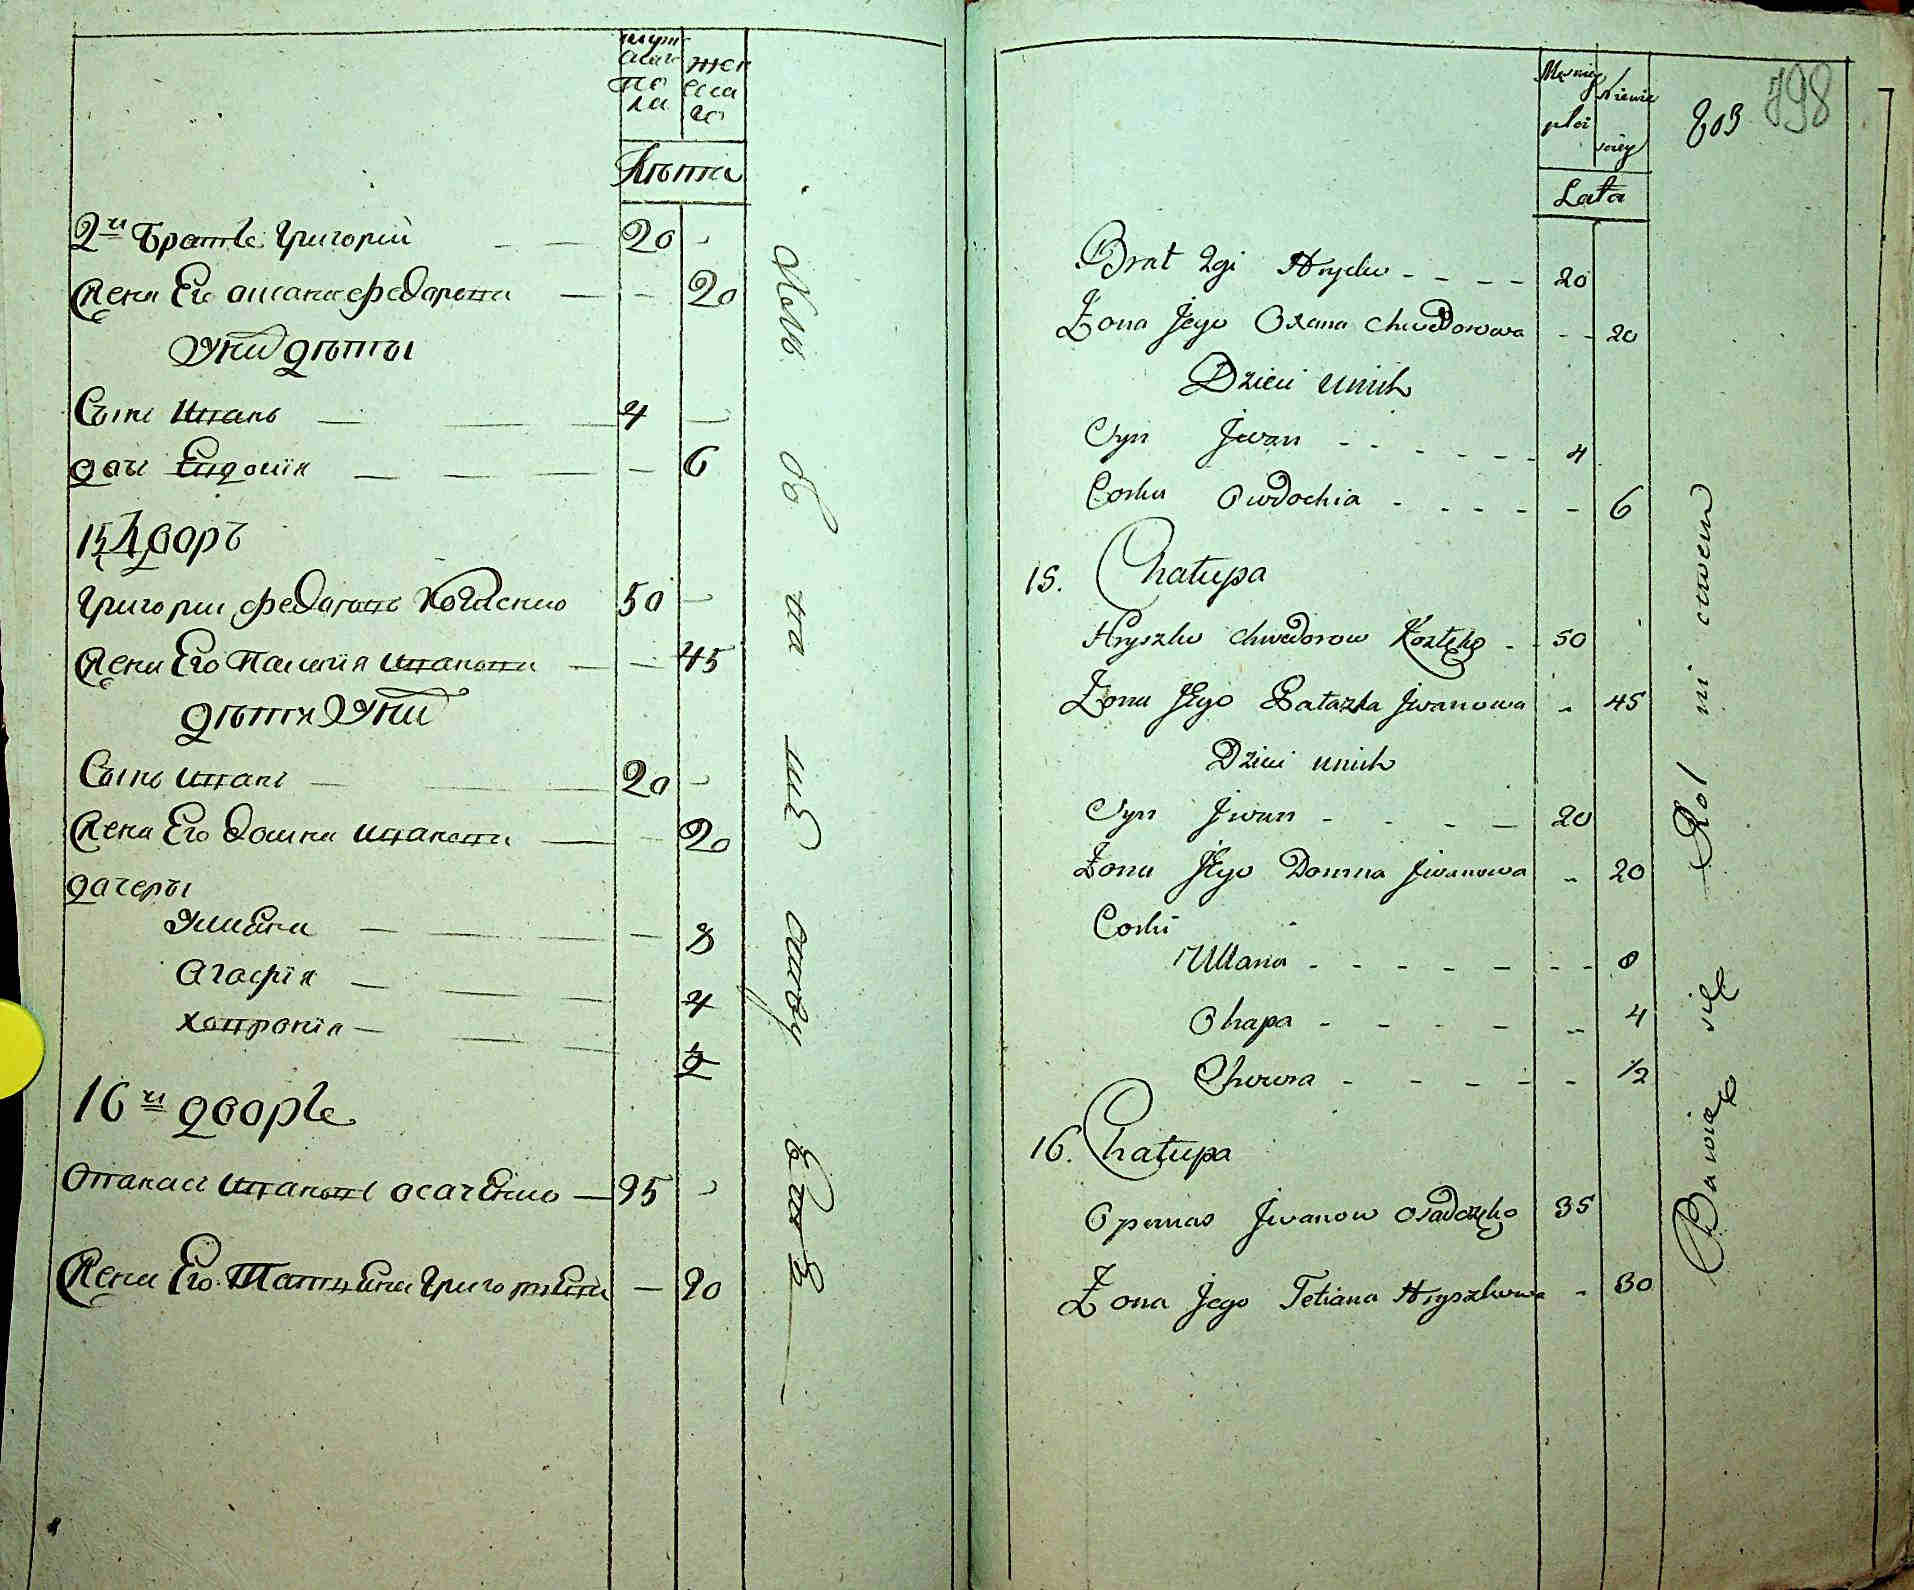 муж
скаго
по
ла
жен
ска
го
Лѣта
2й Братъ Григорiй 20
Жена Его Оксана Федорова 20
У них дѣты
Сынъ Иванъ 4
дочь Евдокiя 6
15 Дворъ
Григорий Федоровъ 50
Жена Его Палагiя Иванова 45
дѣти У них
Сынъ Иванъ 20
Жена Его Домна Иванова 20
дочеры
Улияна 8
Агафiя 4
Хавронiя ½
16й дворъ
Опанасъ Ивановъ Осадчый 35
Жена Его Татьяна Григорьева 30
803
798
Męzkiej
płci
Niewie
sciey
Lata
Brat 2gi Hryćko 20
Zona Jego Oxana Chwedorowa 20
Dzieci unich
Syn Jwan 4
Corka Owdochia 6
15. Chałupa
Hryszko Chwedorow 50
Zona JEgo Pałazka Jwanowa 45
Dzieci unich
Syn Jwan 20
Zona JEgo Domna Jwanowa 20
Corki
Ullana 8
Ohapa 4
Chwora ½
16. Chałupa
Opanas Jwanow Osadczyko 35
Zona Jego Tetiana Hryszkowa 30
Bawią się Rol ni ctwem